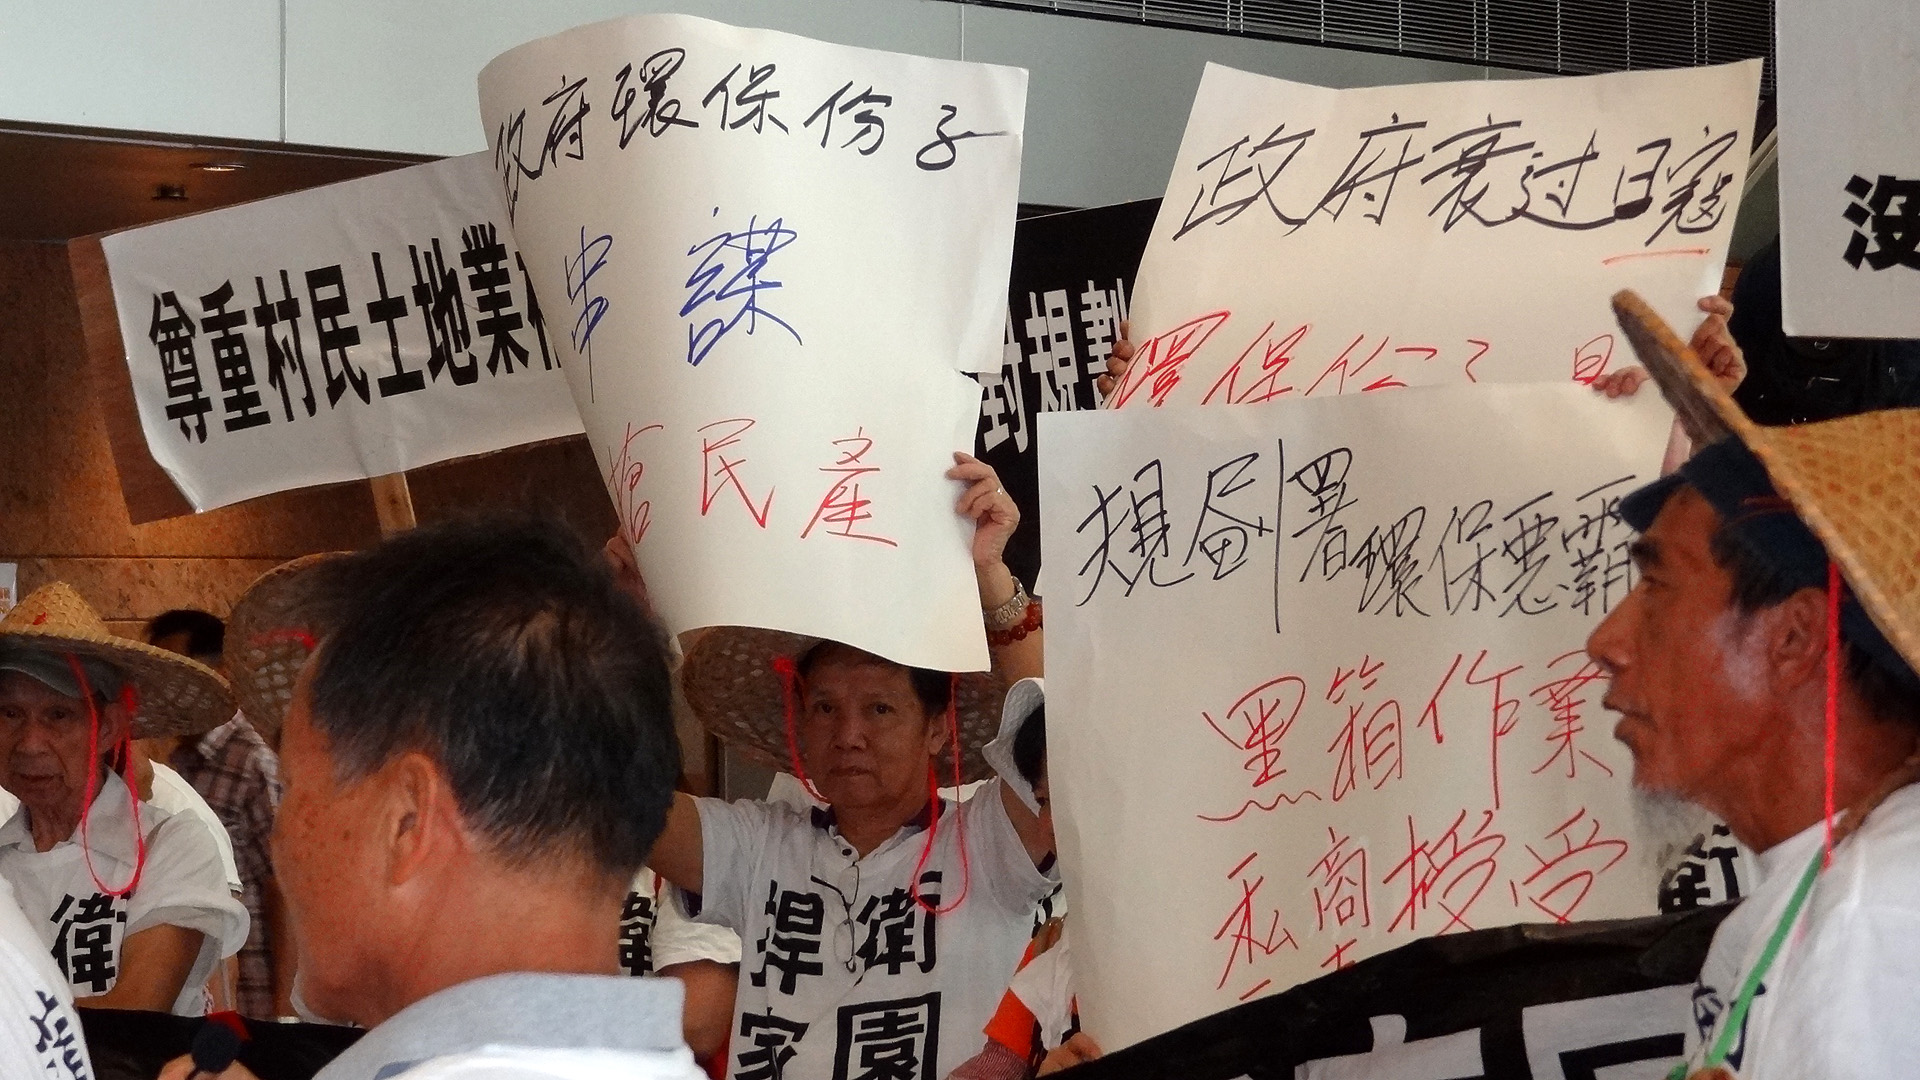 尊重村民土地業
政府環保份子
串謀
搶民產
對規劃
政府衰过日寇
環保
沒
規劃署環保惡霸
黑箱作業
私商授受
衛
捍衛
家園
衛